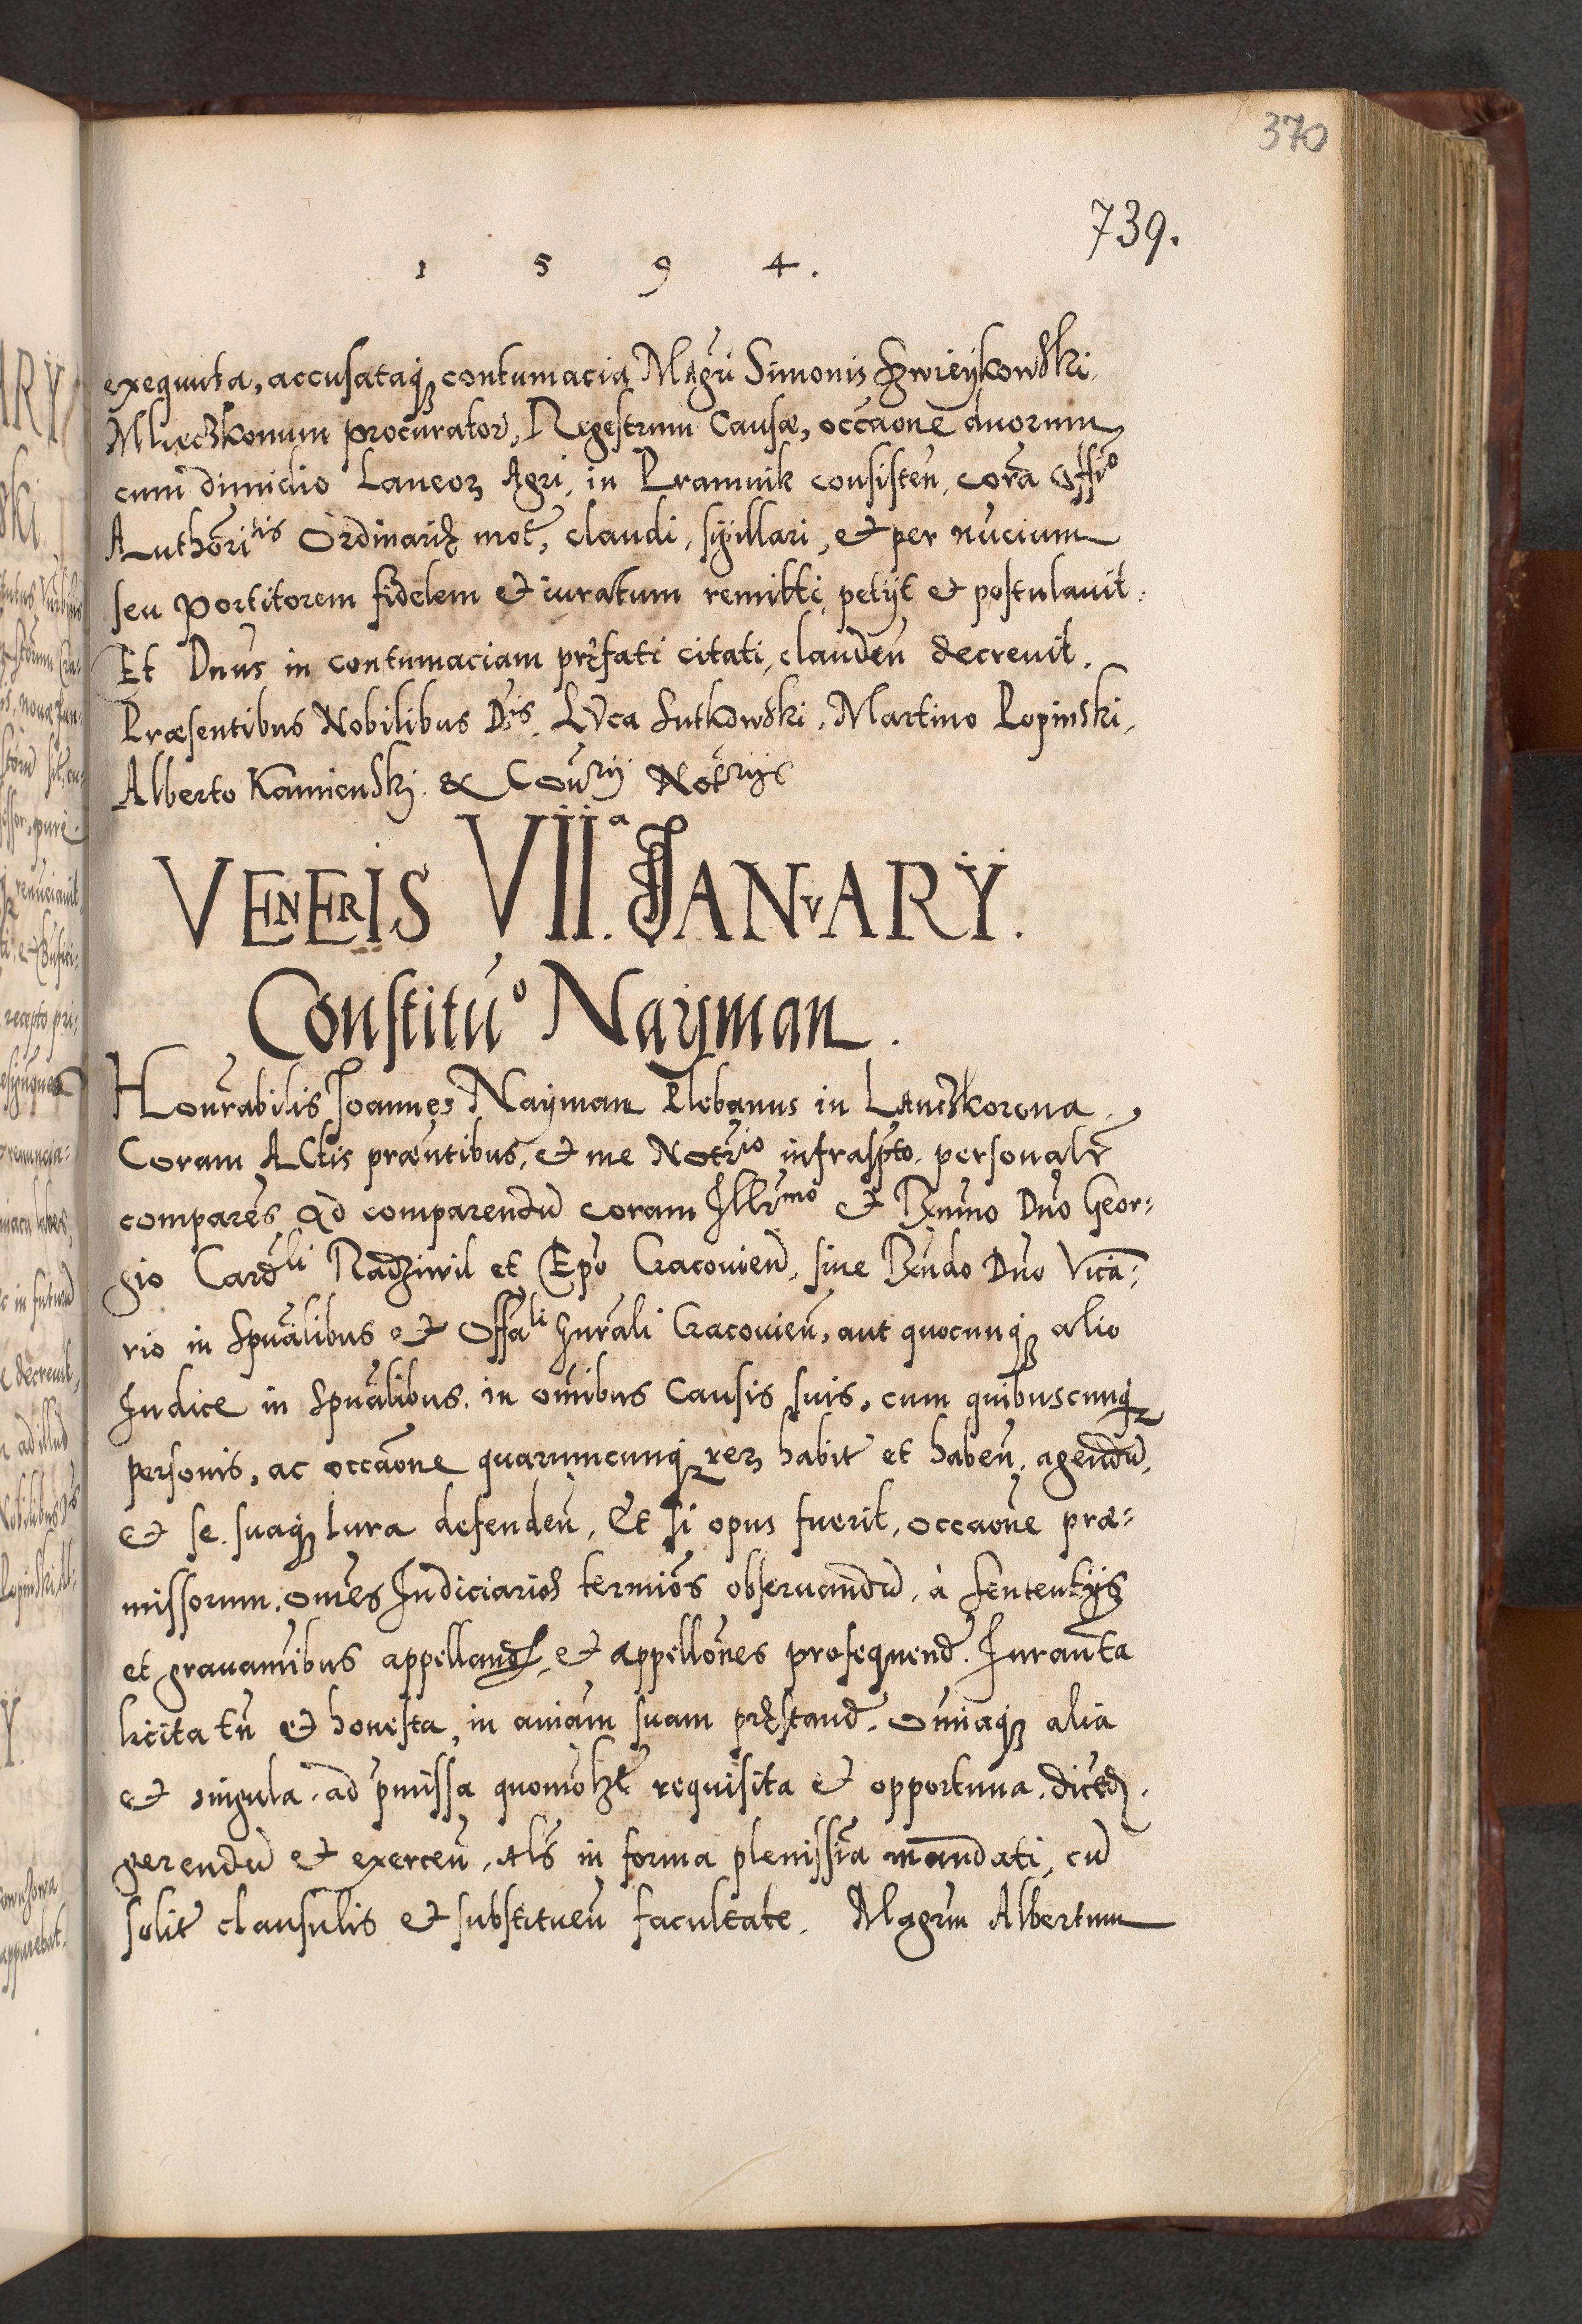 370
739.
1 5 9 4.
exequuta, accusataqꜗ contumacia Mağri Simonis
procurator̄, Regestrum Causæ, occãone duorum
cum dimidio Laneoꝝ Agri, in Pramnik consisten̄, corã Offi͠o
Authori͠tis Ordinariȩ mot͠, claudi, sigillari, et per nũcium
seu portitorem fidelem et iuratum remitti, petijt et postulauit.
Et Dn̄us in contumaciam prȩfati citati, clauden̄ decreuit.
Præsentibus Nobilibus Dn̄is, Luca Lutkowski, Martino Lopinski,
Alberto Kamienski. & Coñrij Notr̃ijs
VENERIS VIIª. JANVARY.
Constitũo Nayman.
Honr̃abilis Joannes Nayman Plebanus in Lanczkorona,
Coram Actis præñtibus, et me Notr̃io infrasp̃to. personalr͠
comparẽs Ad comparendũ coram Illr̃mo et R̃mno Dño Geor-
gio Card̃li Radziwil et Ep̃o Cracouien̄, siue R̃ndo Dño Vicã-
rio in Spũalibus et Offãli Gnrãli Cracouien̄, aut quocunqꜗ alio
Iudice in Spũalibus. in om̃ibus Causis suis, cum quibuscunqꜗ
personis, ac occãone quarumcunqꜗ reꝝ habit͠ et haben̄. agendũ,
et se. suaqꜗ Iura defenden̄, Et si opus fuerit, occãone præ-
missorum. om̃es Iudiciarios termiõs obseruandũ. à sententijs
et grauam̃ibus appelland͠, et appellõnes prosequend͠. Iuram̃ta
licita tñ et honesta, in aniãm suam prȩstand͠. om̃iaqꜗ alia
et singula. ad p̃missa quomolꝫt͠ requisita et opportuna. dicẽd͠.
gerendũ et exercen̄, Als͠ in forma plenissĩa mandati, cũ
solit͠ clausulis et substituen̄ facultate. Magr̃m Albertum